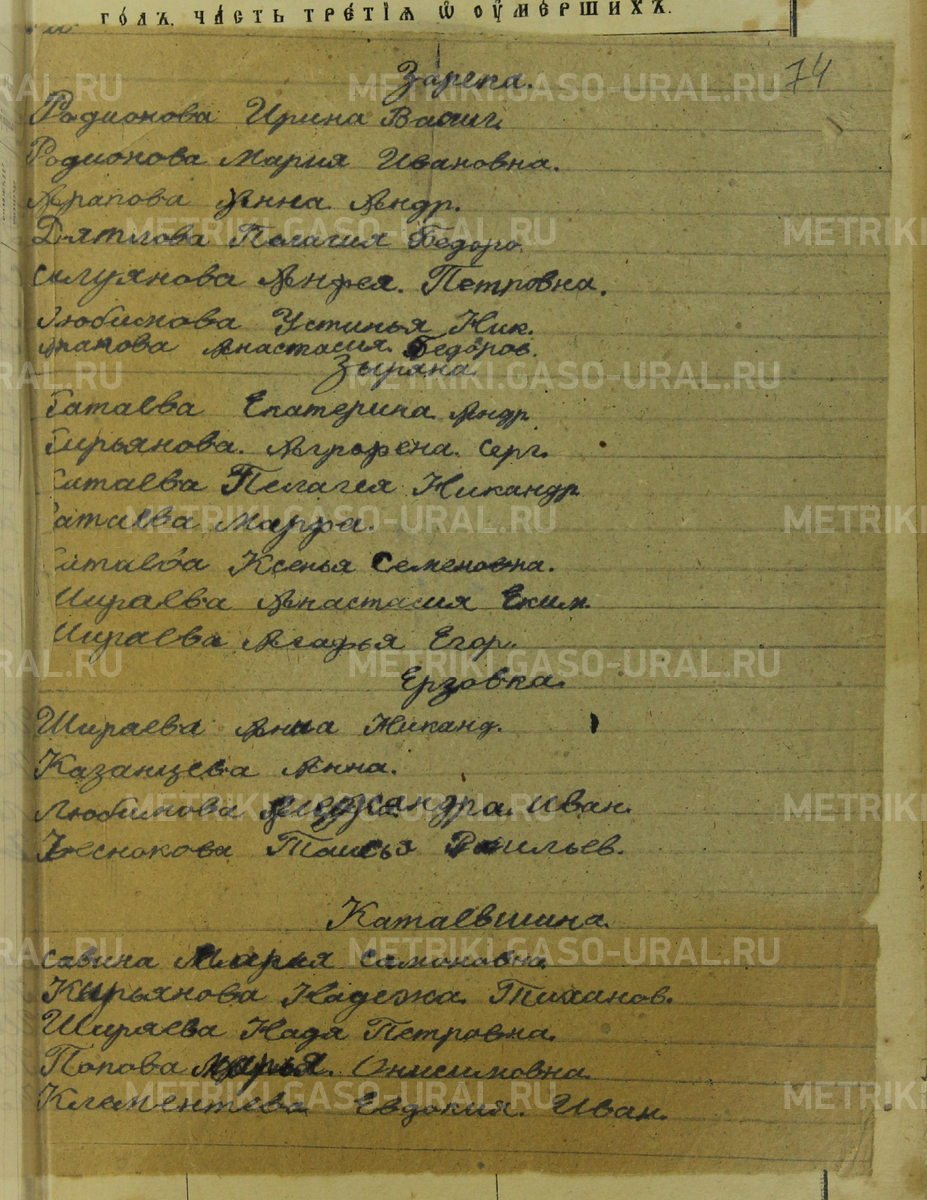 го́дъ, ча́сть тре́тїѧ ѡ оумершихъ.
74
Зарепа.
Родионова Ирина Васил.
Родионова Мария Ивановна.
Арапова Анна Андр.
Дятлова Пелагия Федоро.
Силуянова Анфея. Петровна.
Любимова Устинья Ник.
Арапова Анастасия. Федоров.
Зыряна.
Катаева Екатерина Андр.
Кирьянова. Агрофена. Серг.
Катаева Пелагея Никандр
Катаева Марфа.
Катаева Ксенья Семеновна.
Шираева Анастасия Еким.
Шираева Агафья Егор.
Ерзовка.
Шираева Анна Никанд.
Казанцева Анна.
Любимова Александра Иван.
Чеснокова Таисья Васильев.
Катаевшина.
Савина Марья Самоновна
Кирьянова Надежа. Тиханов.
Ширяева Надя Петровна.
Попова Марья. Онисимовна.
Клементева Евдокия. Иван.
METRIKI.GASO-URAL.RU